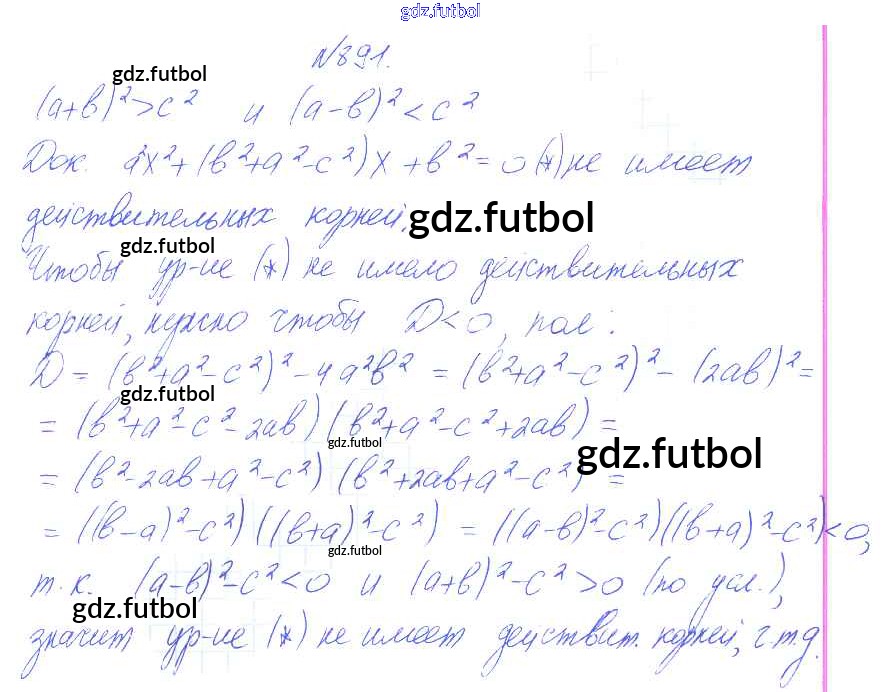 gdz.futbol
№891.
gdz.futbol
(a+b)²>c² и (a-b)²<c²
Док. a²x²+(b²+a²-c²)x+b²=0 (*) не имеет
действительных корней.
gdz.futbol
gdz.futbol
Чтобы ур-ие (*) не имело действительных
корней, нужно чтобы D<0,
D = (b²+a²-c²)²-4a²b² = (b²+a²-c²)²-(2ab)²=
gdz.futbol
= (b²+a²-c²-2ab)(b²+a²-c²+2ab)=
gdz.futbol
gdz.futbol
= (b²-2ab+a²-c²)(b²+2ab+a²-c²)=
= ((b-a)²-c²)((b+a)²-c²) = ((a-b)²-c²)((b+a)²-c²)<0,
gdz.futbol
т.к. (a-b)²-c²<0 и (a+b)²-c²>0 (по усл.),
gdz.futbol
значит ур-ие (*) не имеет действит. корней, ч.т.д.